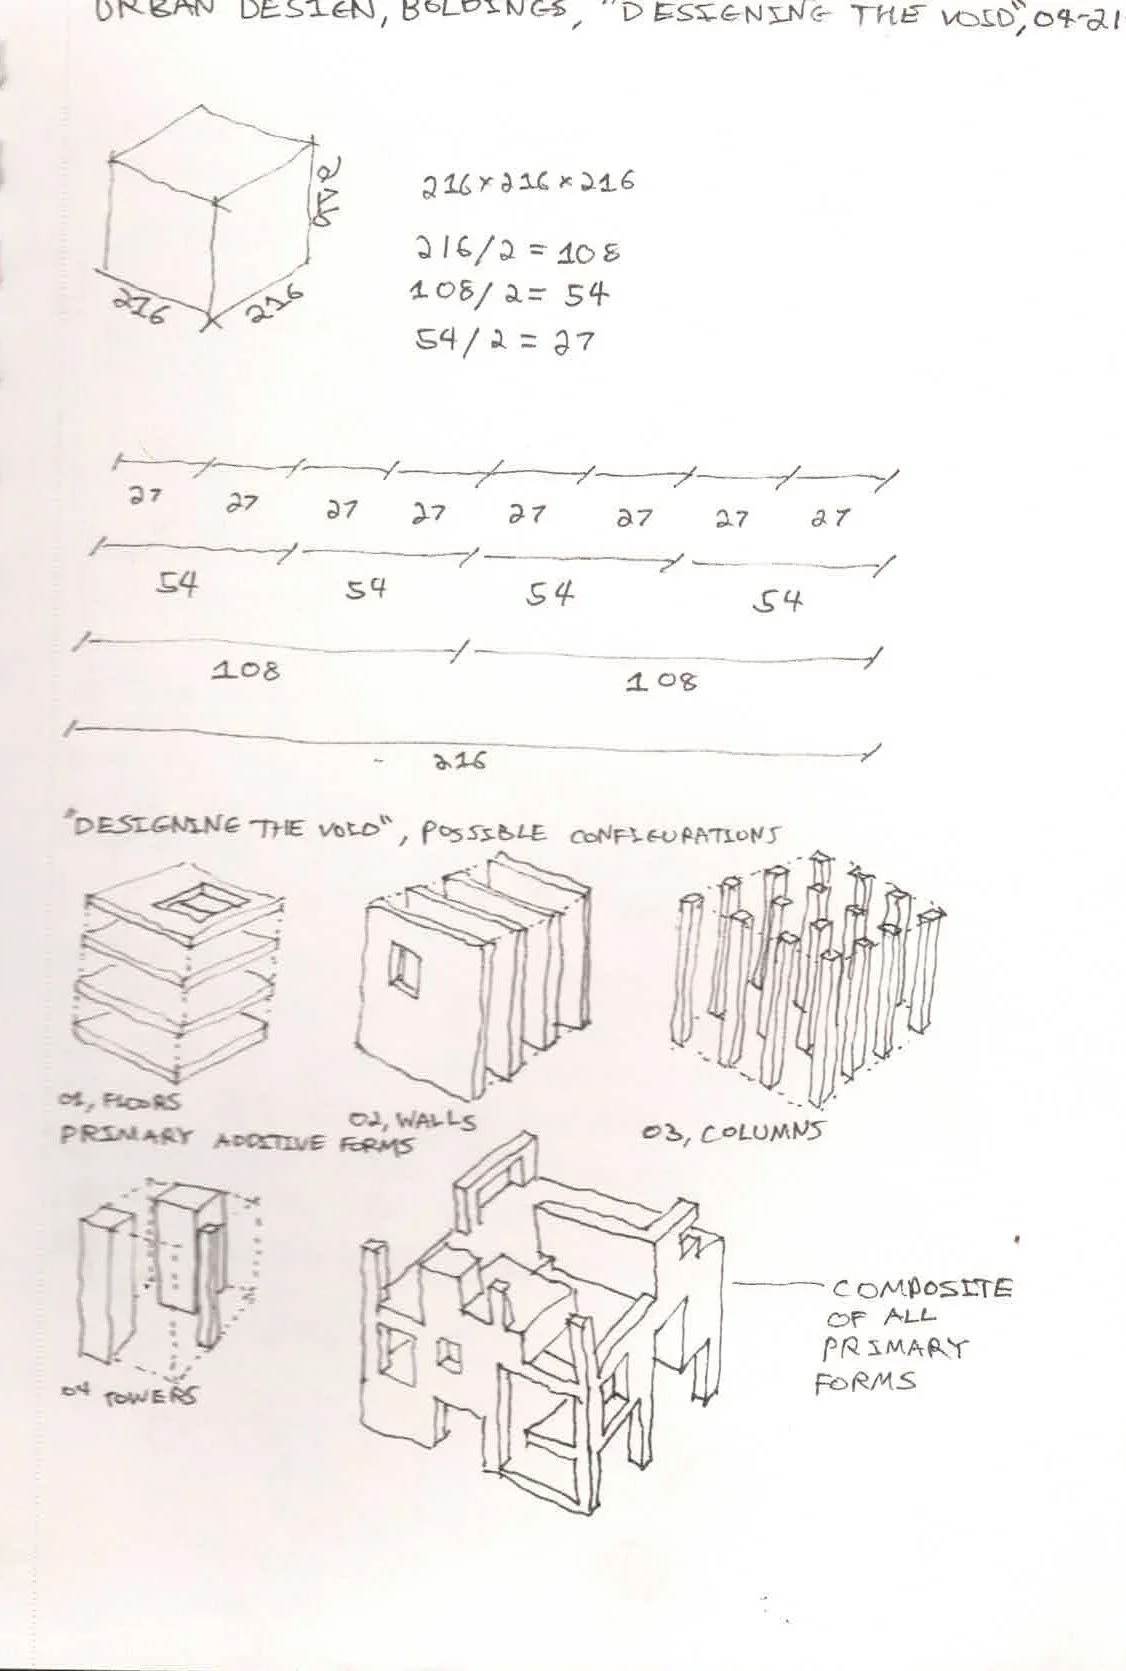 URBAN DESIGN, BOLDINGS, "DESIGNING THE VOID", 04-21
216
216
216
216 x 216 x 216
216/2 = 108
108/2 = 54
54/2 = 27
27 27 27 27 27 27 27 27
54 54 54 54
108 108
216
"DESIGNING THE VOID", POSSIBLE CONFIGURATIONS
01, FLOORS
02, WALLS
03, COLUMNS
PRIMARY ADDITIVE FORMS
04 TOWERS
COMPOSITE
OF ALL
PRIMARY
FORMS